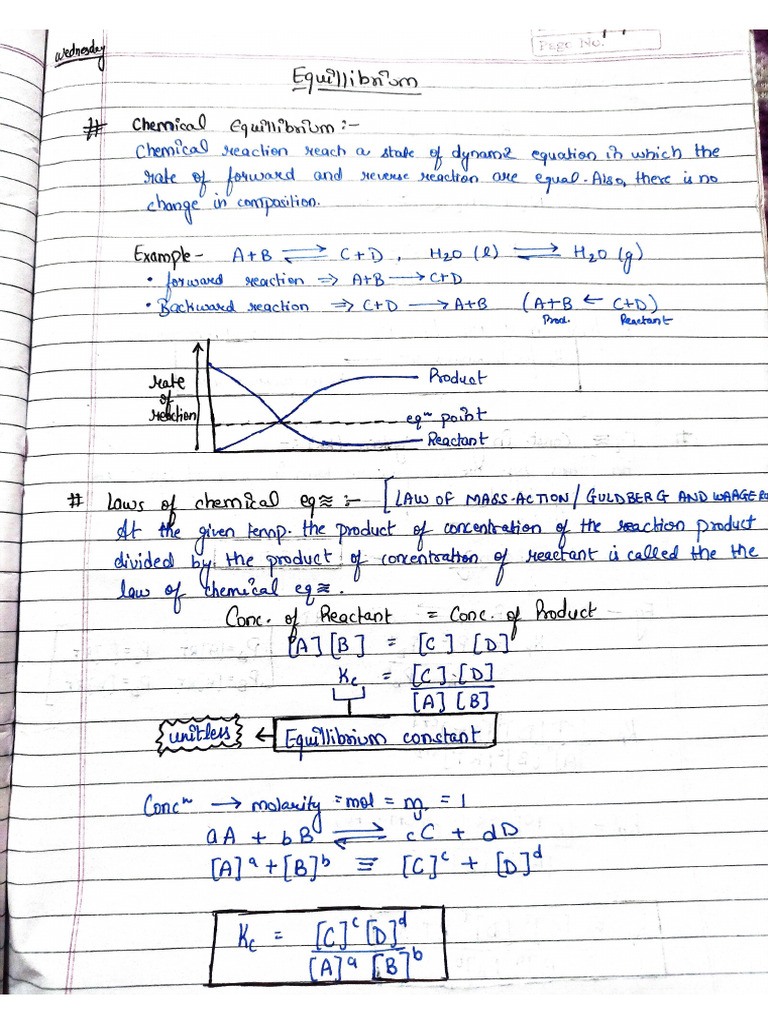 Wednesday
Page No.
Equillibrium
# Chemical Equillibrium :-
Chemical reaction reach a state of dynamz equation in which the
rate of forward and reverse reaction are equal. Also, there is no
change in composition.
Example - A+B ⇌ C+D , H2O (l) ⇌ H2O (g)
• forward reaction ⇒ A+B → C+D
• Backward reaction ⇒ C+D → A+B (A+B ← C+D)
Prod. Reactant
rate
of
reaction
Product
eqⁿ point
Reactant
# Laws of chemical eq≋ :- [LAW OF MASS-ACTION/ GULDBERG AND WAAGE
At the given temp. the product of concentration of the reaction product
divided by the product of concentration of reactant is called the the
law of chemical eq≋.
Conc. of Reactant = Conc. of Product
[A] [B] = [C] [D]
Kc = [C].[D]
[A] [B]
unitless ← Equillibrium constant
Concⁿ → molarity = mol = m = 1
aA + bB ⇌ cC + dD
[A]ᵃ + [B]ᵇ ≡ [C]ᶜ + [D]ᵈ
Kc = [C]ᶜ [D]ᵈ
[A]ᵃ [B]ᵇ